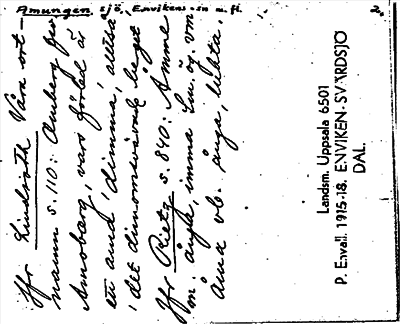 Amungen, sjö, Envikens sn m. fl. 2.
Jfr Lindroth Våra ort-
namn s. 110: Amberg fvn
Amoberg, vars förled är
ett amd 'dimma', alltså
'det dimomsvävade berget
Jfr Rietz s. 840: Ämme
m. ånga, imma Sm. ög. vm
äma vb. ånga, lukta,
Landsm. Uppsala 6501
P. Envall. 1915-18. ENVIKEN-SVÄRDSJÖ
DAL.